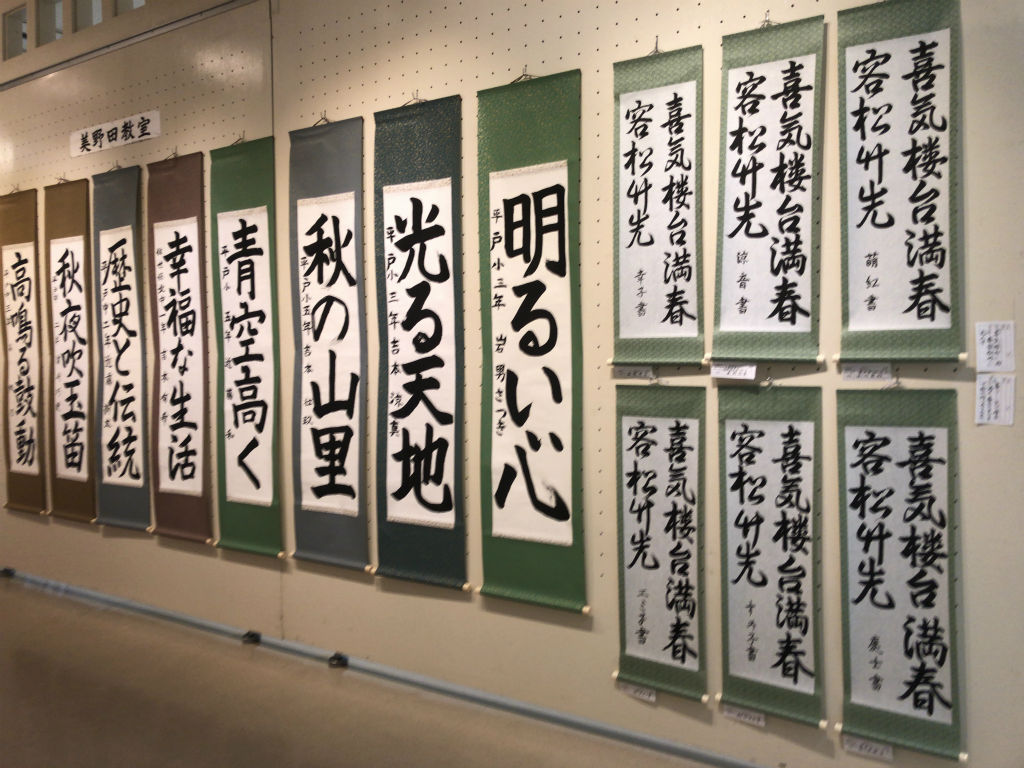 美野田教室
喜気楼台満春
容松竹先
萌紅書
喜気楼台満春
容松竹先
涼音書
喜気楼台満春
容松竹先
幸子書
喜気楼台満春
容松竹先
喜気楼台満春
容松竹先
喜気楼台満春
容松竹先
明るい心
平戸小三年 岩男さつき
光る天地
平戸小三年 吉本涼真
秋の山里
平戸小五年 吉本
青空高く
平戸小 五年
幸福な生活
歴史と伝統
秋夜吹玉笛
高鳴る鼓動